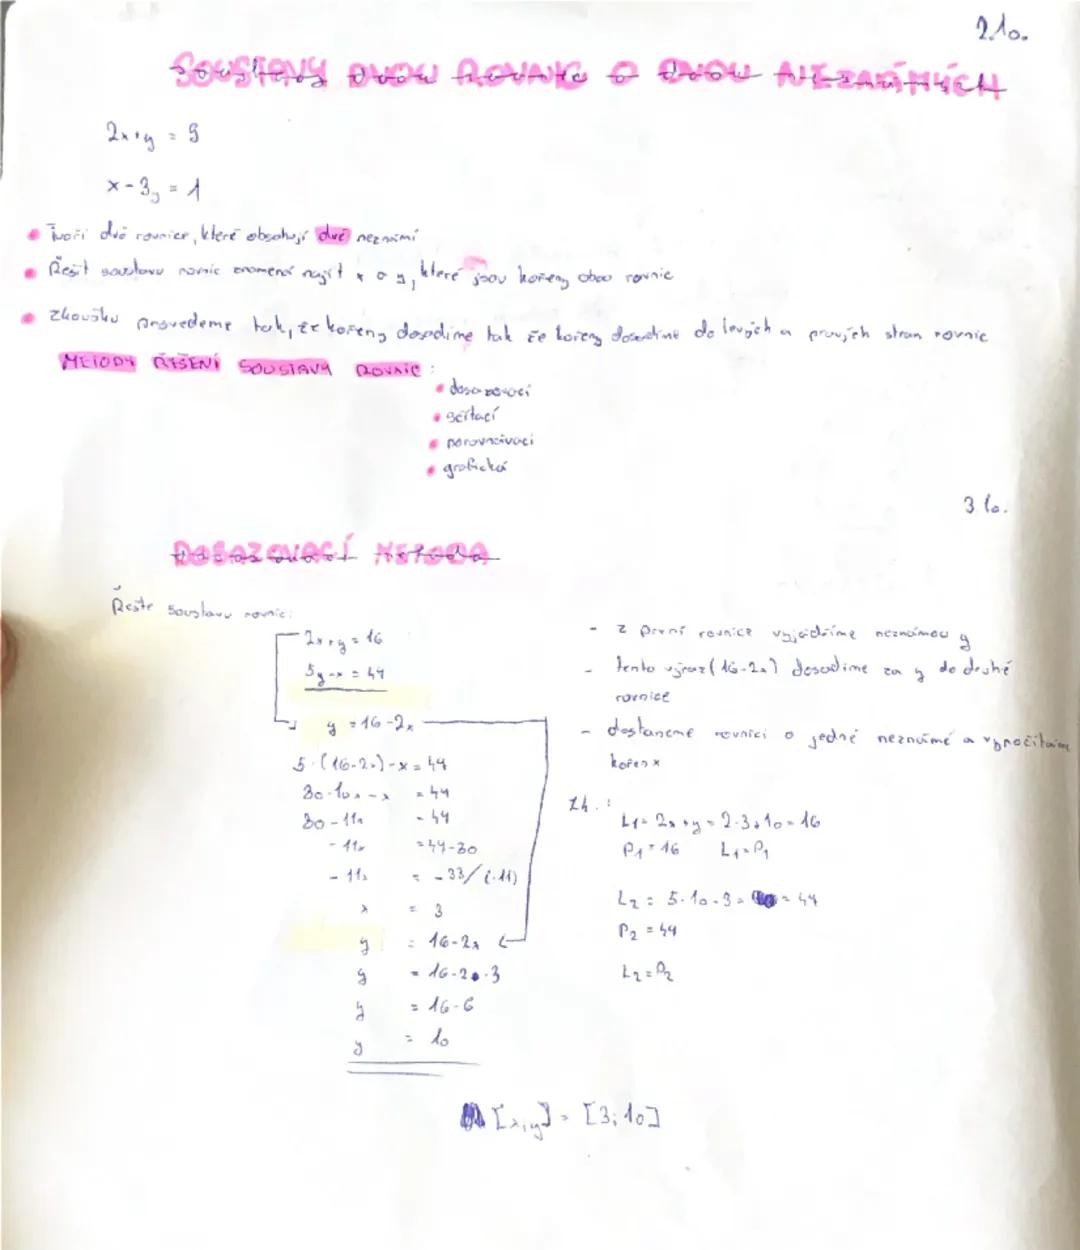 2.10.
SOUSTAVY DVOU ROVNIC O DVOU NEZNÁMÝCH
2x+y = 9
x-3y = 1
Tvoří dvě rovnice, které obsahují dvě neznámí
Řešit soustavu rovnic znamená najít x a y, které jsou kořeny obou rovnic
zkoušku provedeme tak, že kořeny dosadíme tak že kořeny dosadíme do levých a pravých stran rovnic
METODY ŘEŠENÍ SOUSTAVY ROVNIC:
dosazovací
sčítací
porovnávací
grafická
3.10.
DOSAZOVACÍ METODA
Řešte soustavu rovnic:
2x+y = 16
5y-x = 44
y = 16-2x
5·(16-2x)-x = 44
80-10x-x = 44
80-11x = 44
-11x = 44-80
-11x = -33/(-11)
x = 3
y = 16-2x
y = 16-2·3
y = 16-6
y = 10
- z první rovnice vyjádříme neznámou y
- tento výraz (16-2x) dosadíme za y do druhé
rovnice
- dostaneme rovnici o jedné neznámé a vypočítáme
kořen x
Zk.:
L1= 2x+y = 2·3+10=16
P1=16 L1=P1
L2= 5·10-3= = 44
P2 = 44
L2=P2
[x,y] = [3;10]